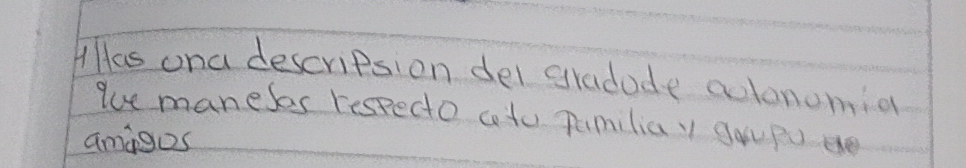 Has una descripsion del gradode autonomia
que manejas respecto a tu familia y grupo de
amigos